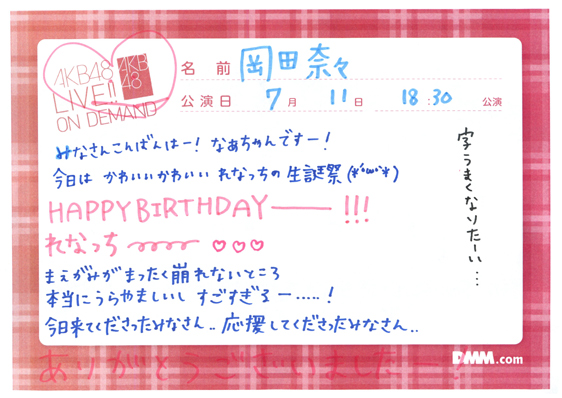 AKB48
LIVE!!
ON DEMAND
AKB
48
名前 岡田奈々
公演日 7月 11日 18:30 公演
みなさんこんばんはー! なぁちゃんですー!
今日は かわいいかわいい れなっちの 生誕祭 (*'ω'*)
HAPPY BIRTHDAY——— !!!
れなっち 〰〰 ♡♡♡
まえがみがまったく崩れないところ
本当にうらやましいし すごすぎるー.....!
今日来てくださったみなさん.. 応援してくださったみなさん..
ありがとうございましたー!
字うまくなりたーい...
DMM.com